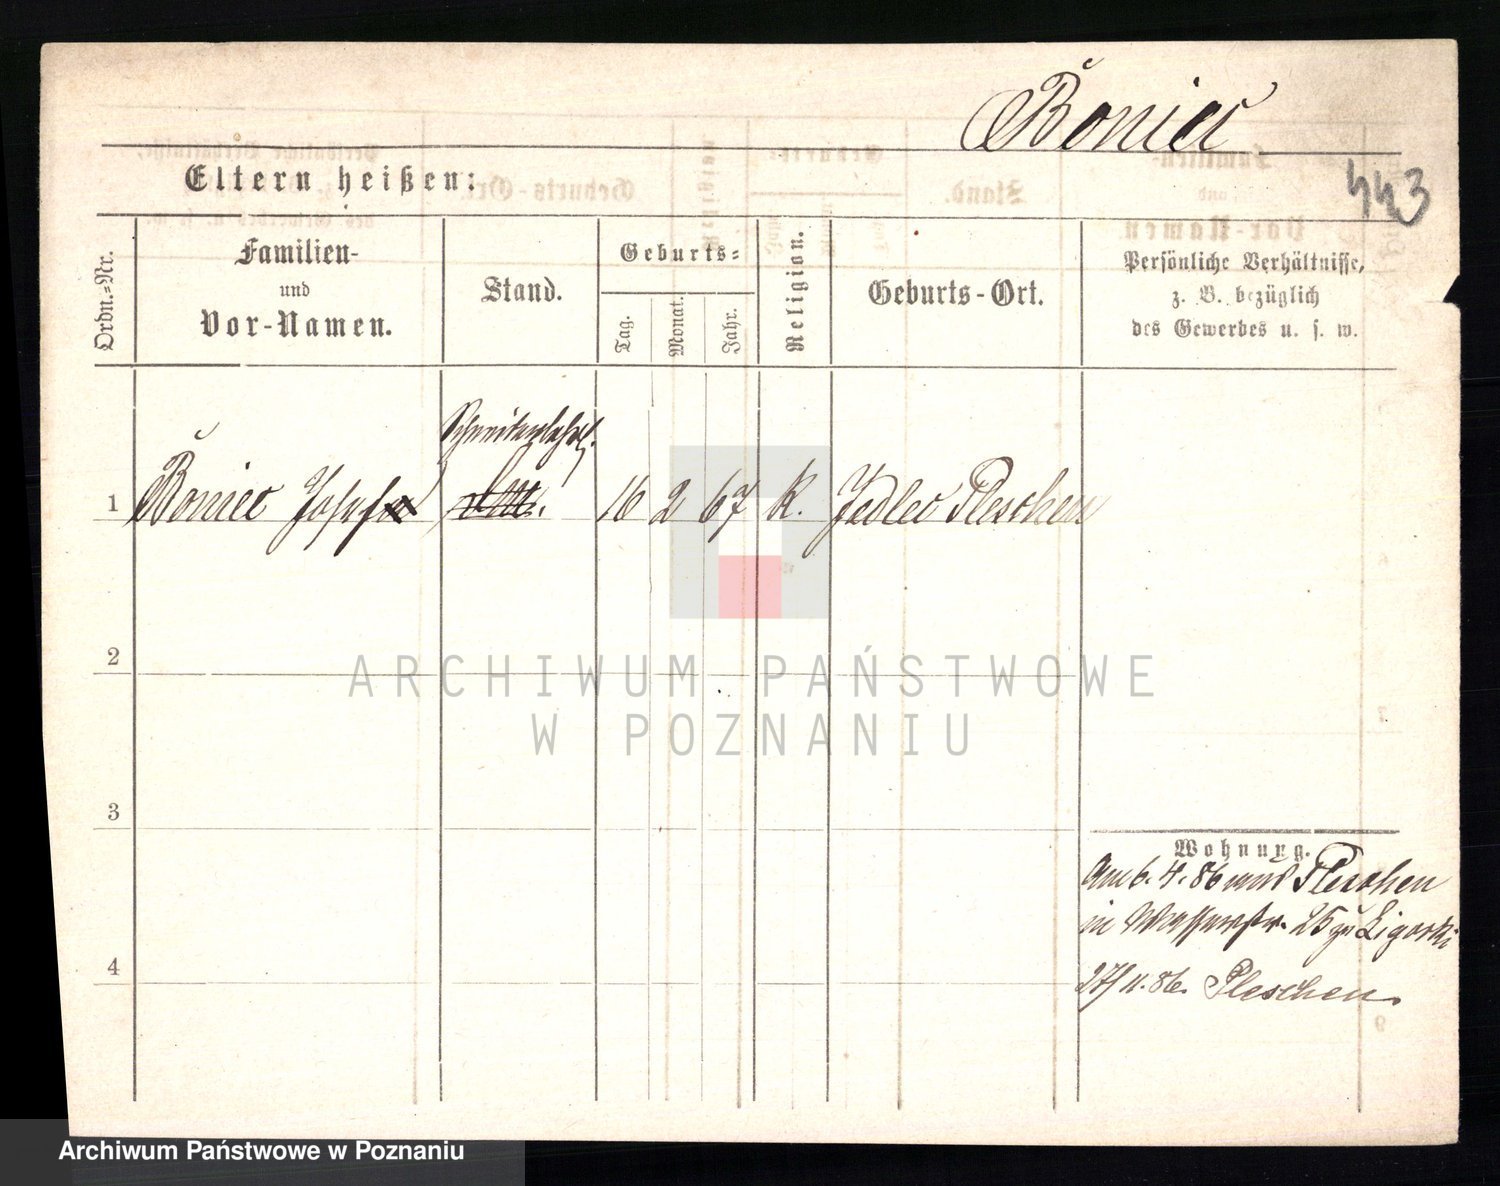 Boniec
443
Eltern heißen:
Ordn.-Nr.
Familien-
und
Vor-Namen.
Stand.
Geburts-
Tag.
Monat.
Jahr.
Religion.
Geburts-Ort.
Persönliche Verhältnisse,
z. B. bezüglich
des Gewerbes u. s. w.
1 Boniec Josef 16 2 67 K. Jedlec Pleschen
2
ARCHIWUM PAŃSTWOWE
W POZNANIU
3
Wohnung.
Am 6. 4. 86 aus Pleschen
in Wasserstr. 25 zu Ligorski
4
27/11. 86. Pleschen.
Archiwum Państwowe w Poznaniu